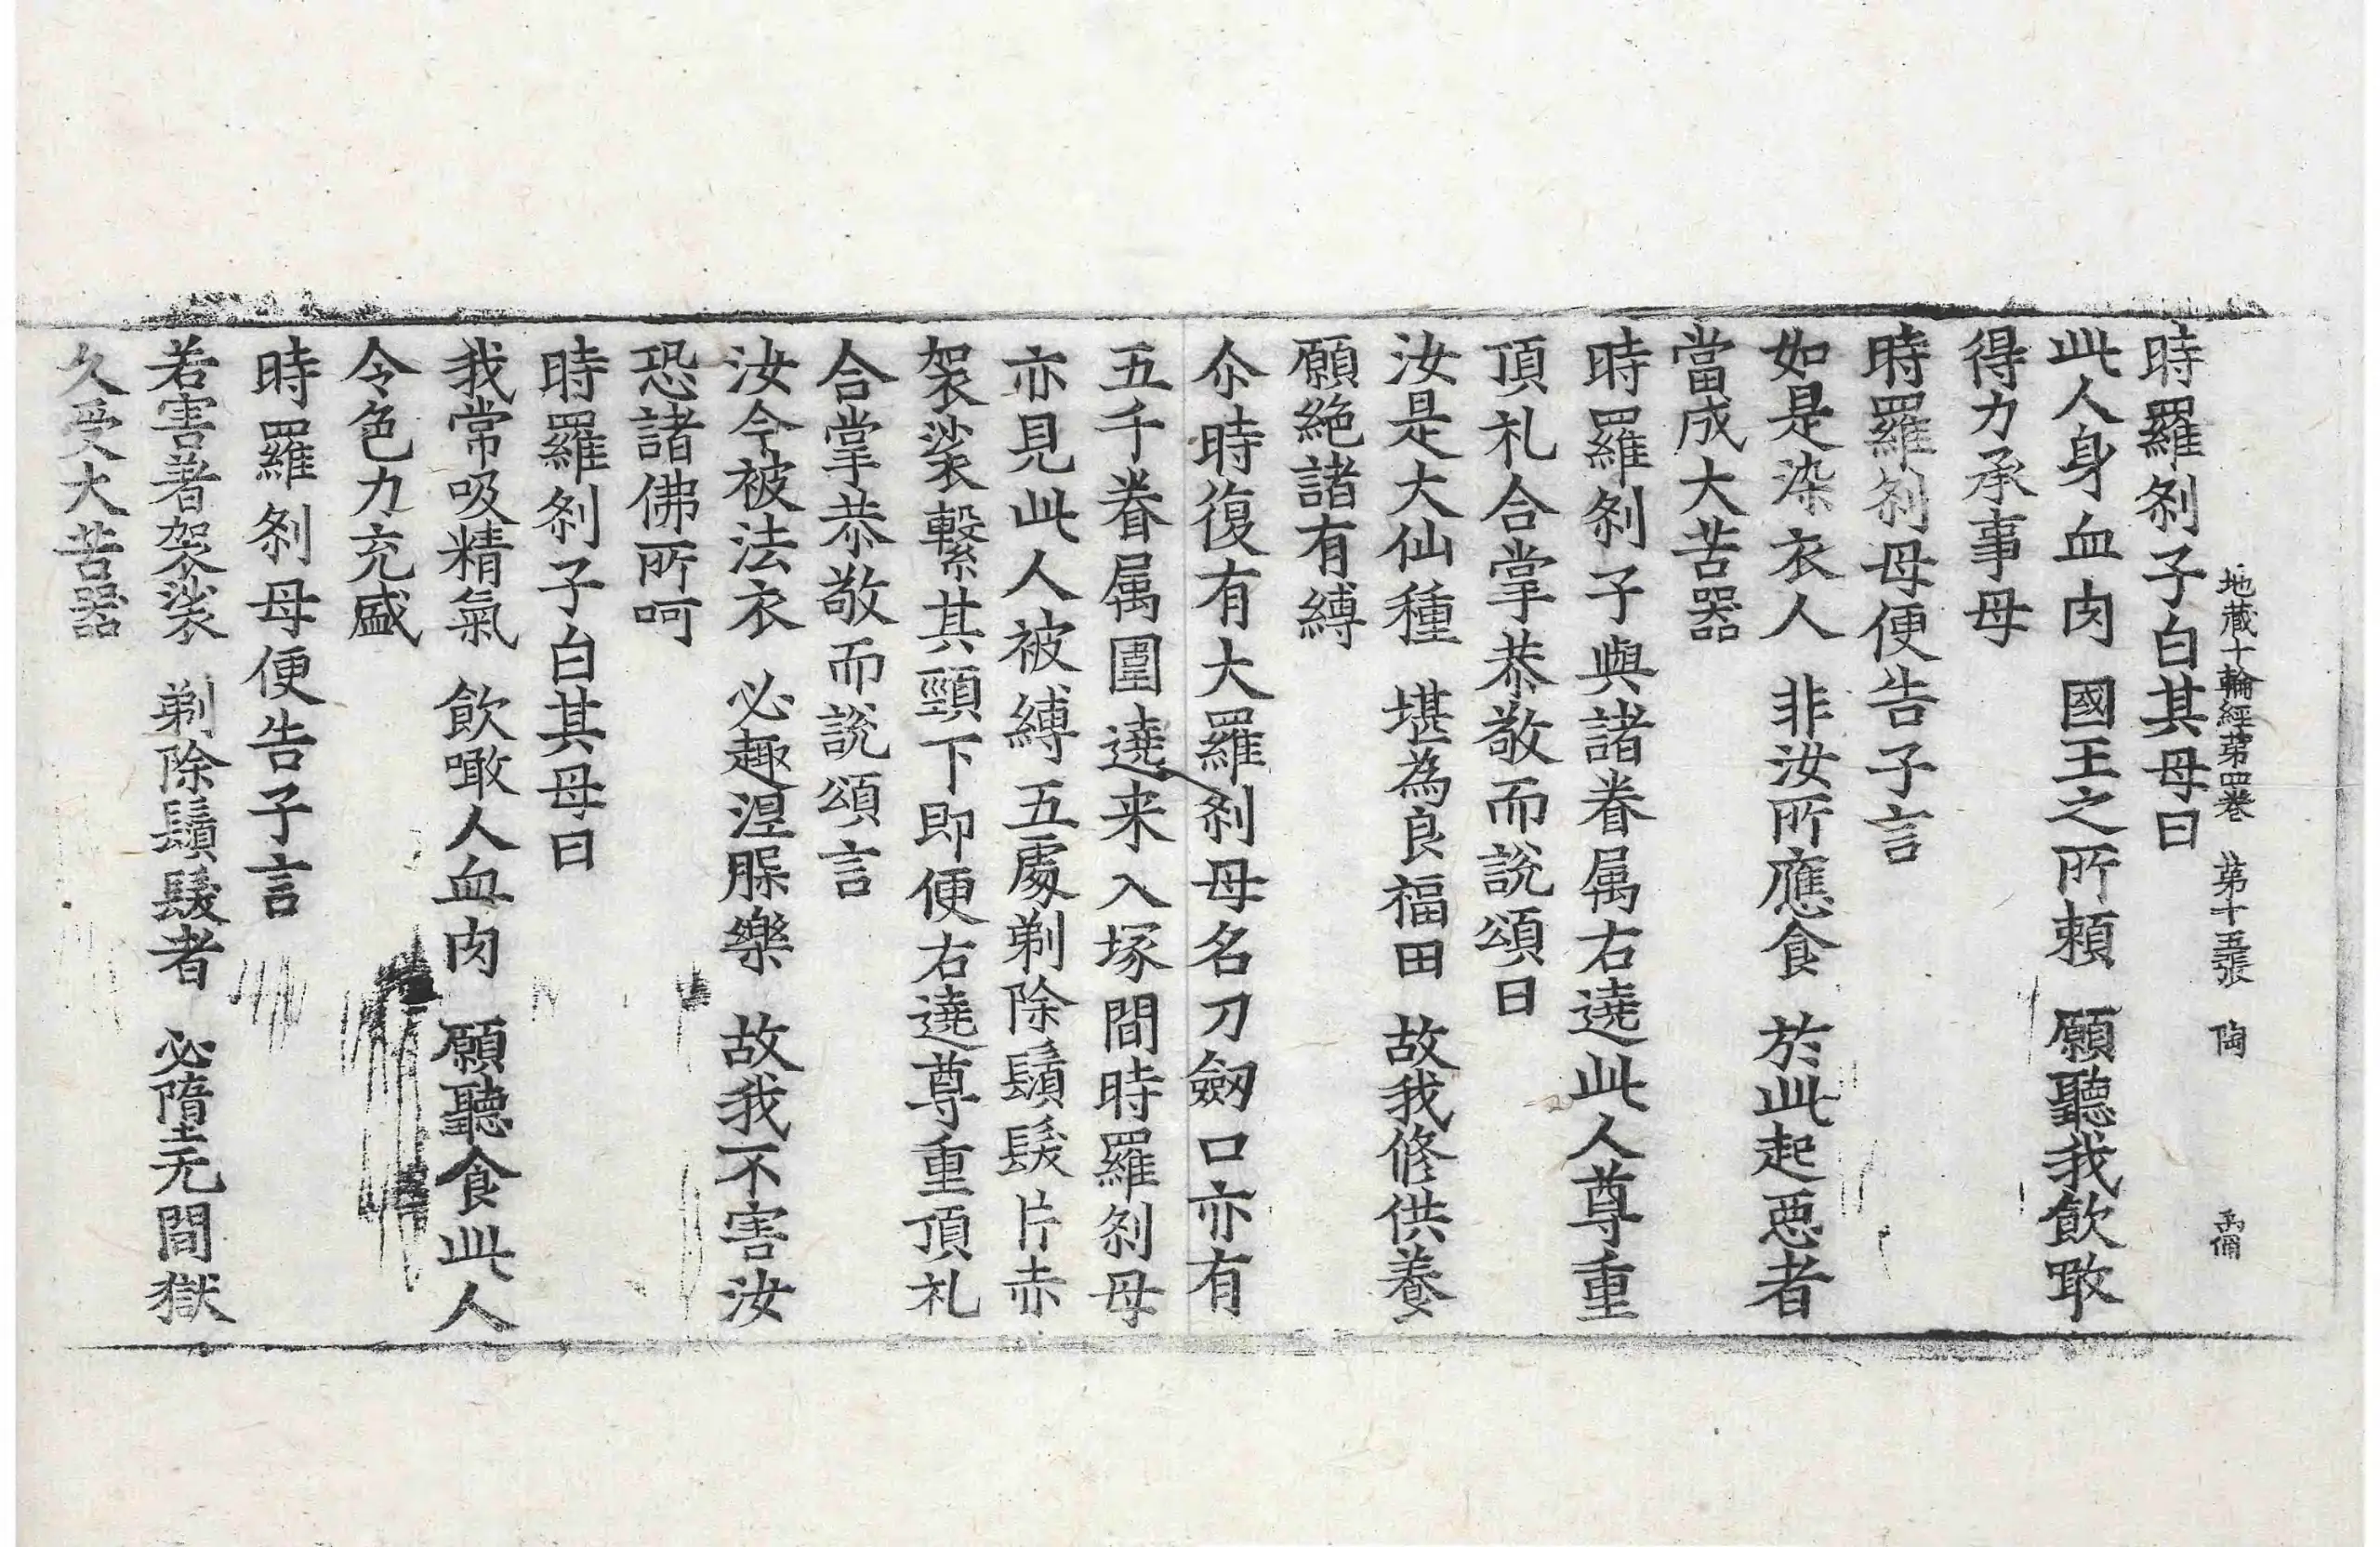 地蔵十輪經第四卷　第十五張　陶
時羅刹子白其母曰
此人身血肉　國王之所頼　願聽我飲敢
得力承事母
時羅刹母便告子言
如是染衣人　非汝所應食　於此起惡者
當成大苦器
時羅刹子與諸眷属右遶此人尊重
頂礼合掌恭敬而說頌曰
汝是大仙種　堪為良福田　故我修供養
願絶諸有縛
尒時復有大羅刹母名刀劔口亦有
五千眷属圍遶来入塚間時羅刹母
亦見此人被縛五處剃除鬚髮片赤
袈裟繫其頸下即便右遶尊重頂礼
合掌恭敬而說頌言
汝今被法衣　必趣涅脲樂　故我不害汝
恐諸佛所呵
時羅刹子白其母曰
我常吸精氣　飲噉人血肉　願聽食此人
令色力充盛
時羅刹母便告子言
若害著袈裟　剃除鬚髮者　必墮无間獄
久受大苦器